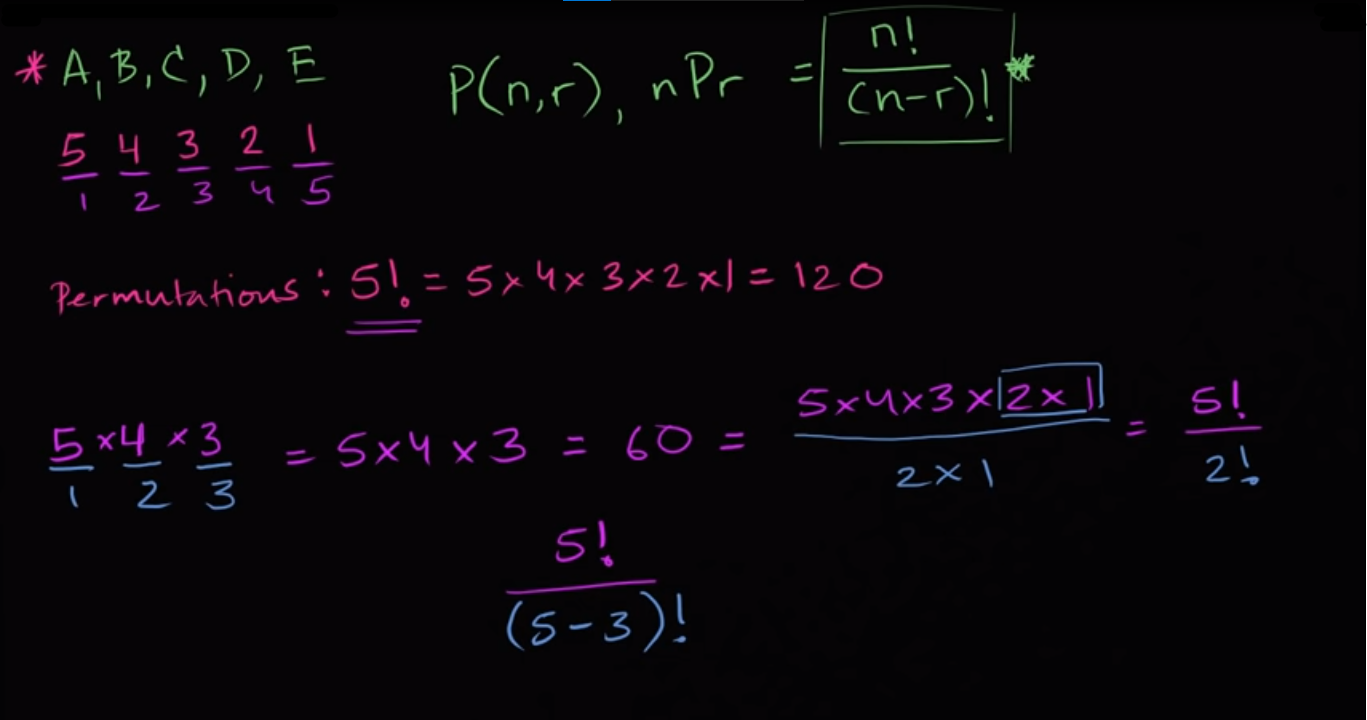 * A, B, C, D, E P(n,r), nPr = n!/(n-r)! *
5 4 3 2 1
1 2 3 4 5
Permutations : 5! = 5 × 4 × 3 × 2 × 1 = 120
5 × 4 × 3 = 5 × 4 × 3 = 60 = 5×4×3×2×1 / 2×1 = 5!/2!
1 2 3
5!
(5-3)!